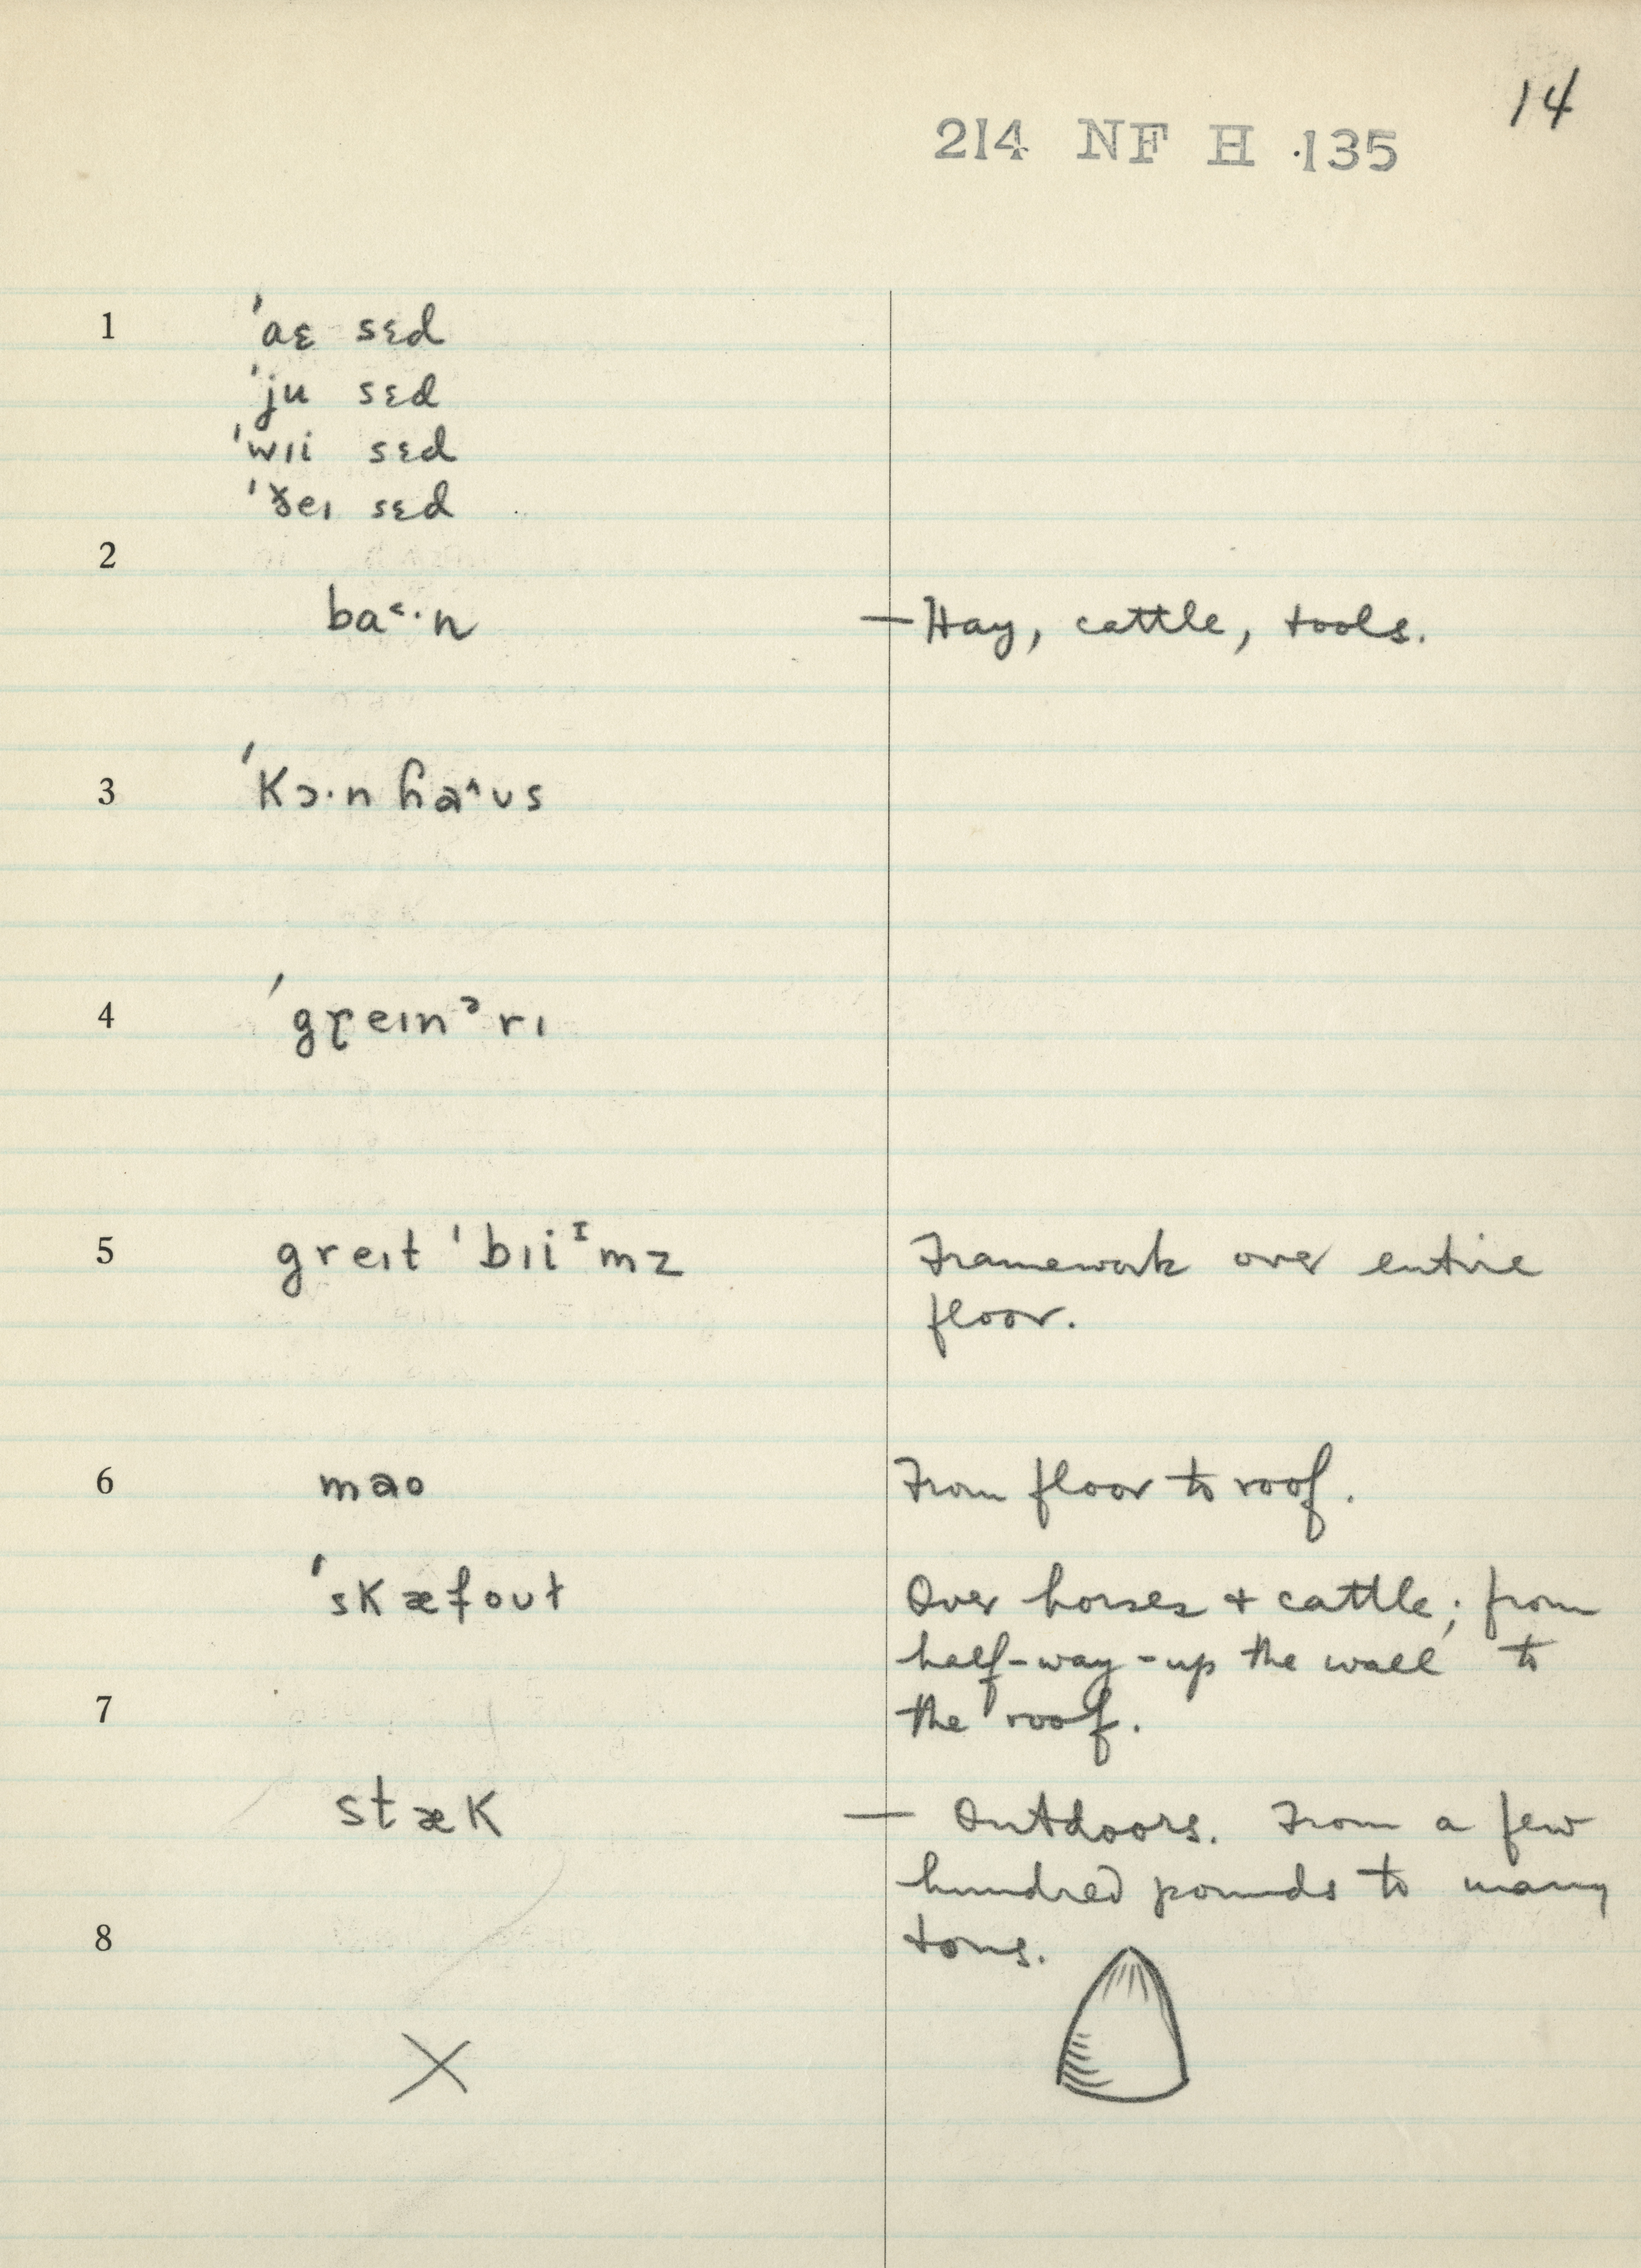 14
214 NF H 135
1 ˈaɛ sɛd
ˈju sɛd
ˈwɪi sɛd
ˈðeɪ sɛd
2
ba˂·n — Hay, cattle, tools.
3 ˈkɔ·n ɦa˄ʊs
4 ˈgɽeɪnᵊrɪ
5 greɪt ˈbɪiᶦmz Framework over entire
floor.
6 mao From floor to roof.
ˈskæfoʊt Over horses + cattle; from
half-way-up the wall to
7 the roof.
stæk — Outdoors. From a few
hundred pounds to many
8 tons.
X